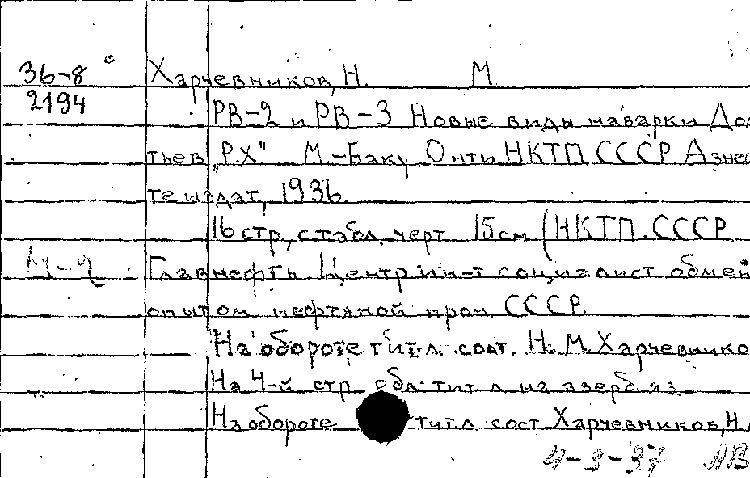 36-8 Харчевников, Н. М.
2194 РВ-2 и РВ-3 Новые виды наварки До
тьев „РХ" М-Баку Онти НКТП СССР Азне
теиздат, 1936.
16 стр., с табл. черт 15 см (НКТП. СССР
Главнефть Центр ин-т социалист обмен
опытом нефтяной пром СССР.
На обороте титл. сост. Н. М. Харчевнико
На 4-й стр. обл. тит л на азерб яз
На обороте титл сост Харчевников, Н.
4-9-37 АВ